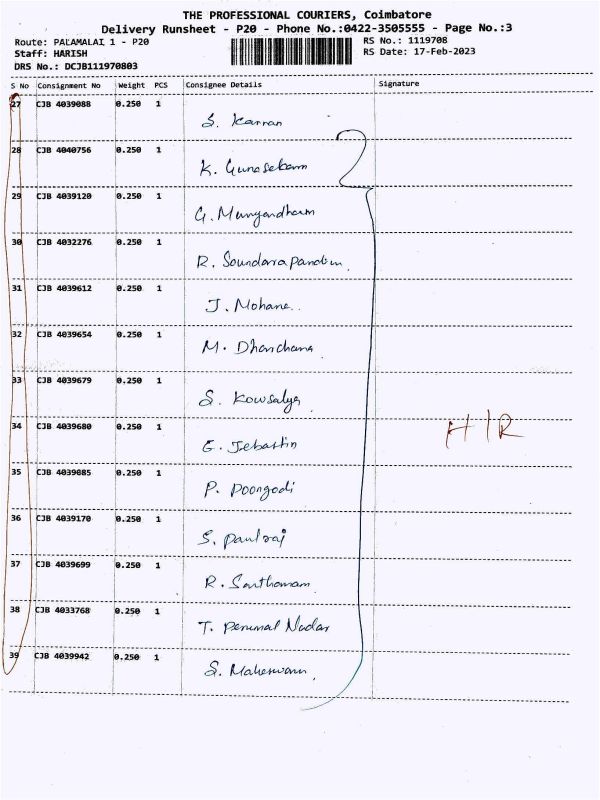 THE PROFESSIONAL COURIERS, Coimbatore
Delivery Runsheet - P20 - Phone No.:0422-3505555 - Page No.:3
Route: PALAMALAI 1 - P20
RS No.: 1119708
Staff: HARISH
RS Date: 17-Feb-2023
DRS No.: DCJB111970803
S No Consignment No Weight PCS Consignee Details Signature
27 CJB 4039088 0.250 1
S. Kannan
28 CJB 4040756 0.250 1
K. Gunasekaran
29 CJB 4039120 0.250 1
G.
30 CJB 4032276 0.250 1
R. Soundarapandian
31 CJB 4039612 0.250 1
J. Mohana
32 CJB 4039654 0.250 1
M. Dhanchana
33 CJB 4039679 0.250 1
S. Kowsalya
34 CJB 4039680 0.250 1
H/R
E. Jebastin
35 CJB 4039085 0.250 1
P. Poongodi
36 CJB 4039170 0.250 1
S. Paulraj
37 CJB 4039699 0.250 1
R.
38 CJB 4033768 0.250 1
T. Perumal Nadar
39 CJB 4039942 0.250 1
S. Maheswari